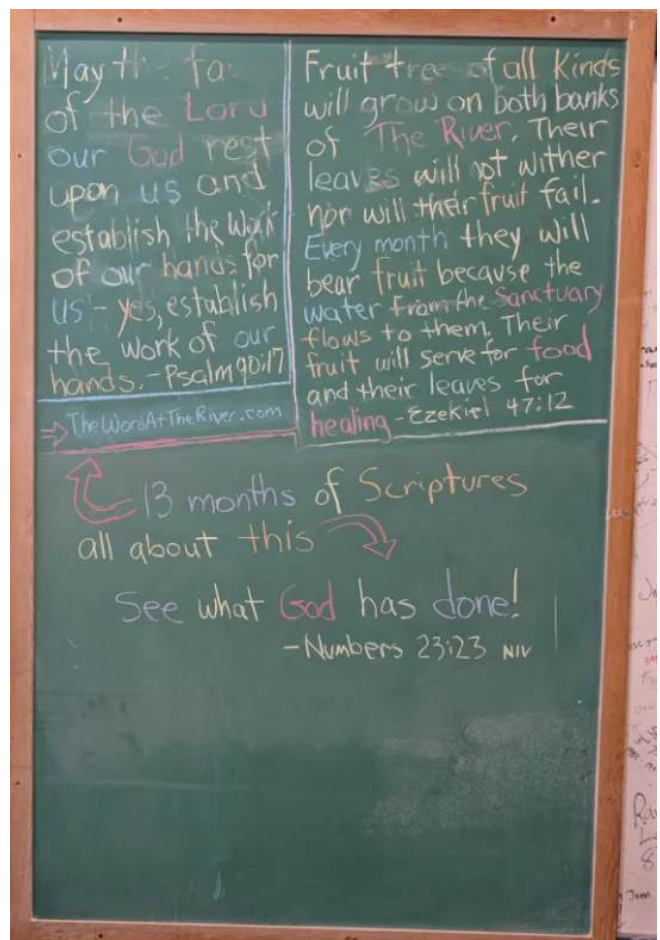 May the fa
of the Lord
our God rest
upon us and
establish the work
of our hands for
us - yes, establish
the work of our
hands. - Psalm 90:17
TheWordAtTheRiver.com
Fruit tree of all kinds
will grow on both banks
of The River. Their
leaves will not wither
nor will their fruit fail.
Every month they will
bear fruit because the
water from the Sanctuary
flows to them. Their
fruit will serve for food
and their leaves for
healing - Ezekiel 47:12
13 months of Scriptures
all about this
See what God has done!
- Numbers 23:23 NIV